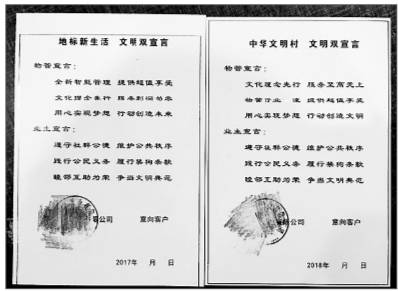 地标新生活 文明双宣言
物管宣言:
全新智能管理 提供超值享受
文化理念先行 服务
用心实现梦想 行动创造未来
业主宣言:
遵守社群公德 维护公共秩序
践行公民义务 履行禁狗条款
睦邻互助为荣 争当文明典范
公司 意向客户
2017年 月 日
中华文明村 文明双宣言
物管宣言:
文化理念先行 服务至高无上
物管行业一流 提供超值享受
用心实现梦想 行动创造文明
业主宣言:
遵守社群公德 维护公共秩序
践行公民义务 履行禁狗条款
睦邻互助为荣 争当文明典范
公司 意向客户
2018年 月 日